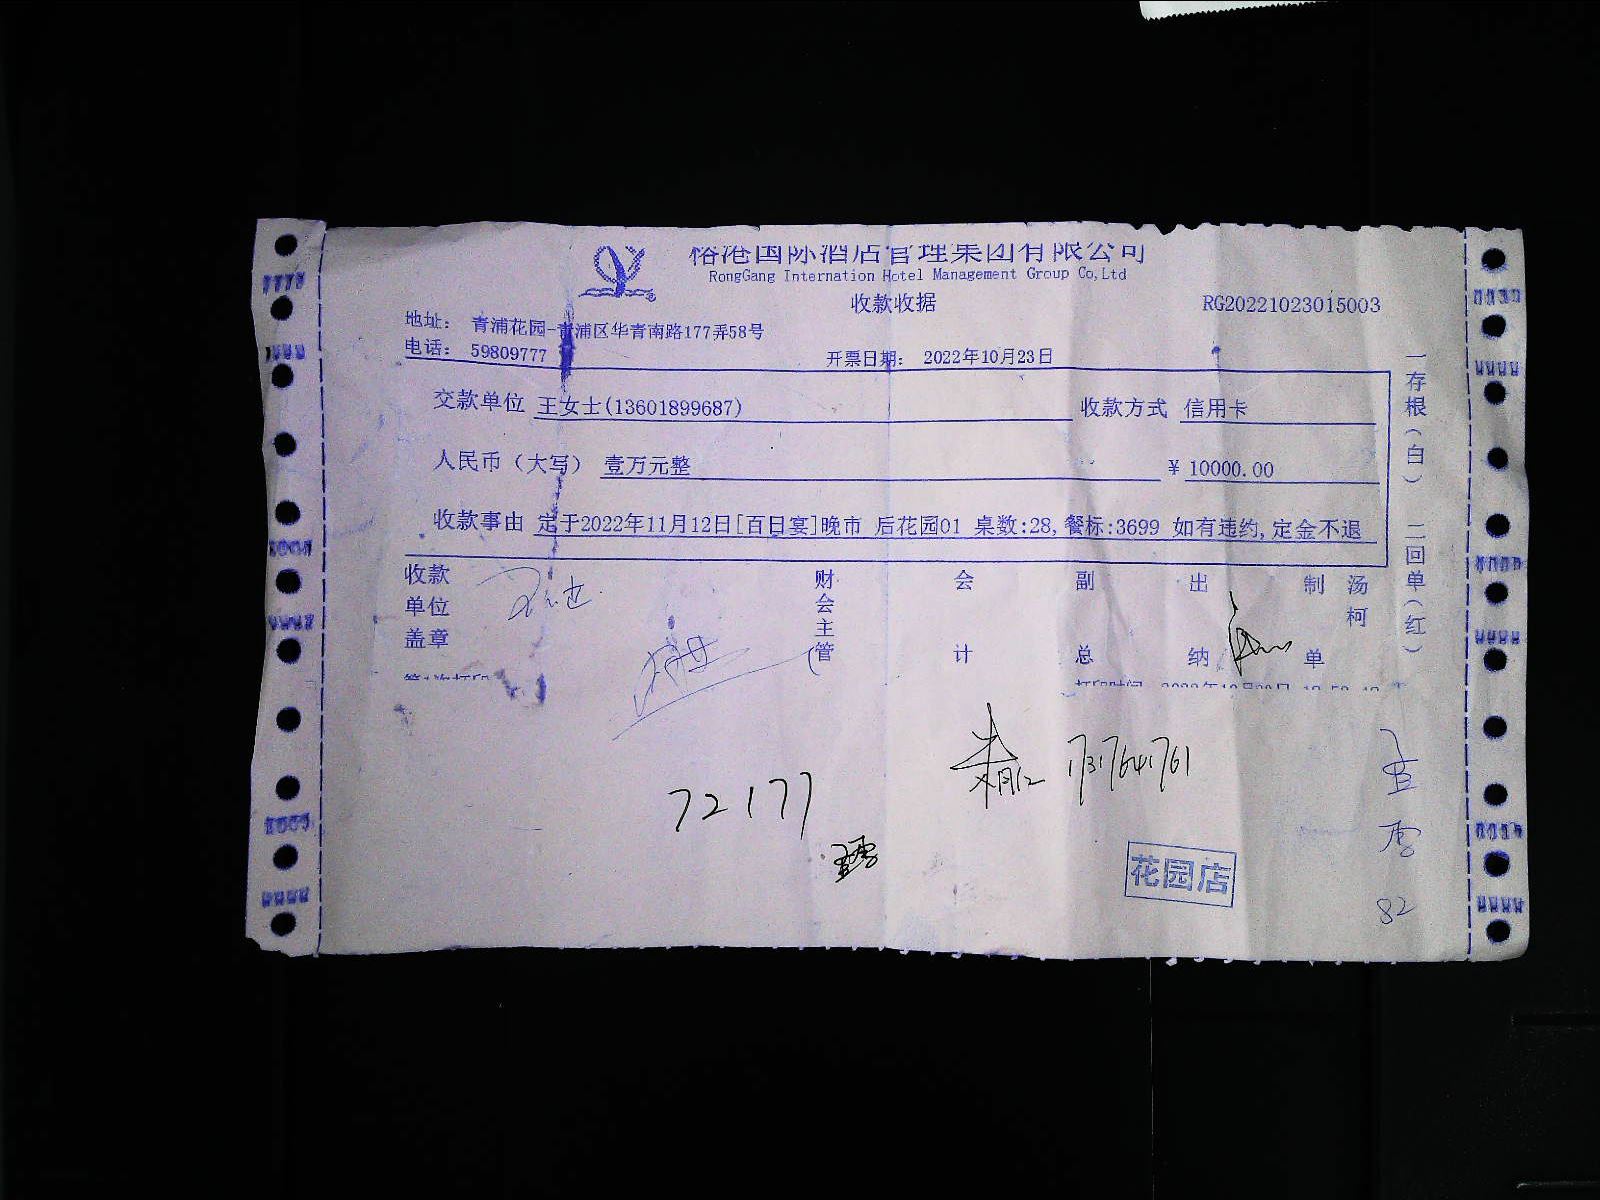 榕港国际酒店管理集团有限公司
RongGang Internation Hotel Management Group Co,Ltd
收款收据
RG20221023015003
地址： 青浦花园-青浦区华青南路177弄58号
电话： 59809777
开票日期： 2022年10月23日
交款单位 王女士(13601899687) 收款方式 信用卡
人民币（大写） 壹万元整 ¥ 10000.00
收款事由 定于2022年11月12日[百日宴]晚市 后花园01 桌数:28,餐标:3699 如有违约,定金不退
收款单位盖章 财会主管 会计 副总 出纳 制单 汤柯
一存根（白） 二回单（红）
72177
花园店
82